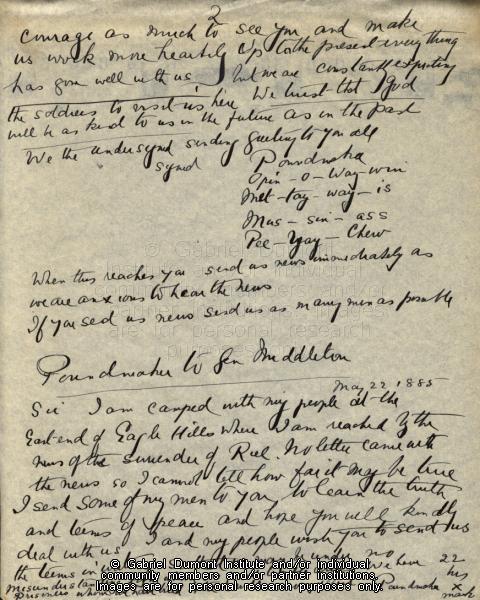 2
courage as much to see you and make
us work more heartily Up to the present everything
has gone well with us but we are constantly expecting
the soldiers to visit us here We trust that god
will be as kind to us in the future as in the past
We the undersigned sending greeting to you all
signed Poundmaka
Opin-o-way-win
Met-tay-way-is
Mus-sin-ass
Pee-yay-Chew
When this reaches you send us news immediately as
we are anxious to hear the news
If you send us news send us as many men as possible
Poundmaker to Gen Middleton
May 22 1885
Sir I am camped with my people at the
East end of Eagle Hills where I am reached by the
news of the surrender of Riel. No letter came with
the news so I cannot tell how far it may be true
I send some of my men to you to learn the truth
and terms of peace and hope you will kindly
deal with us I and my people wish you to send us
the terms in under no
we have 22
his
Prisoners Poundmaker x
mark
© Gabriel Dumont Institute and/or individual
community members and/or partner institutions.
Images are for personal research purposes.